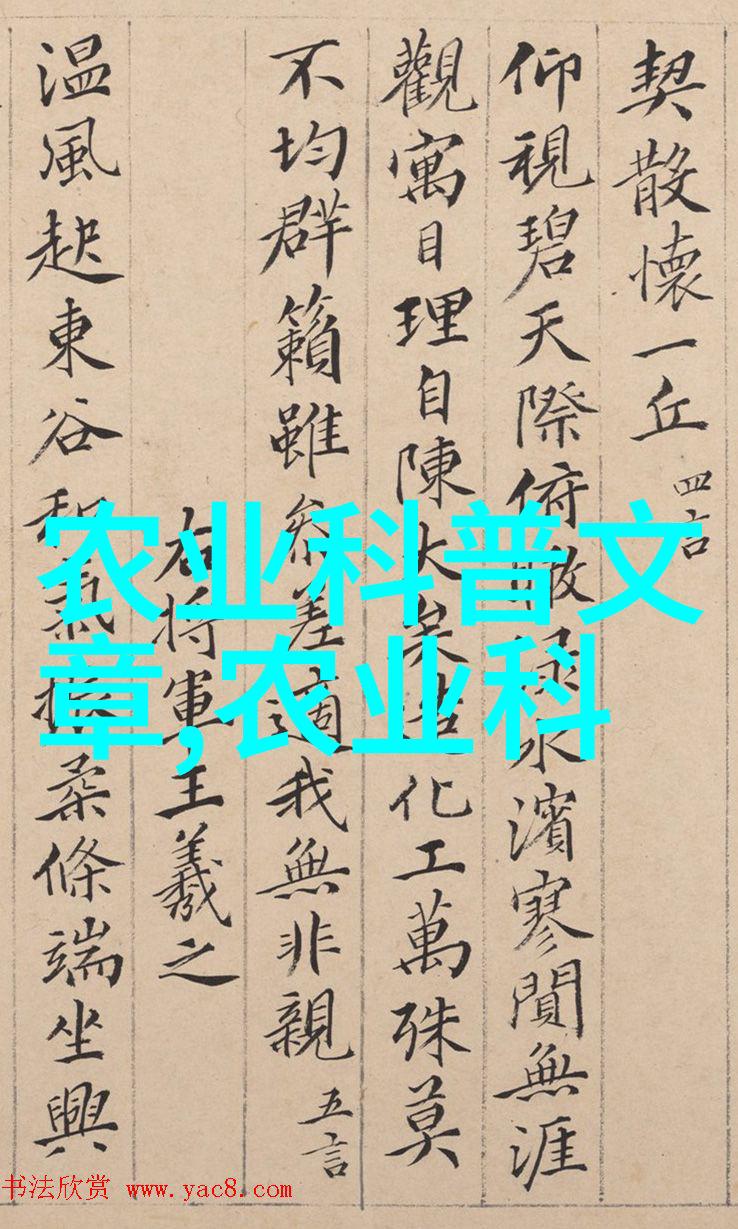 契散懷一丘 四言
仰視碧天際俯瞰水濱寥閴無涯
觀寓目理自陳大矣造化工萬殊莫
不均群籟雖參差適我無非親 五言
右將軍王羲之
温風起東谷和氣振柔條端坐興
农业科普文
章,农业科
书法欣赏 www.yac8.com